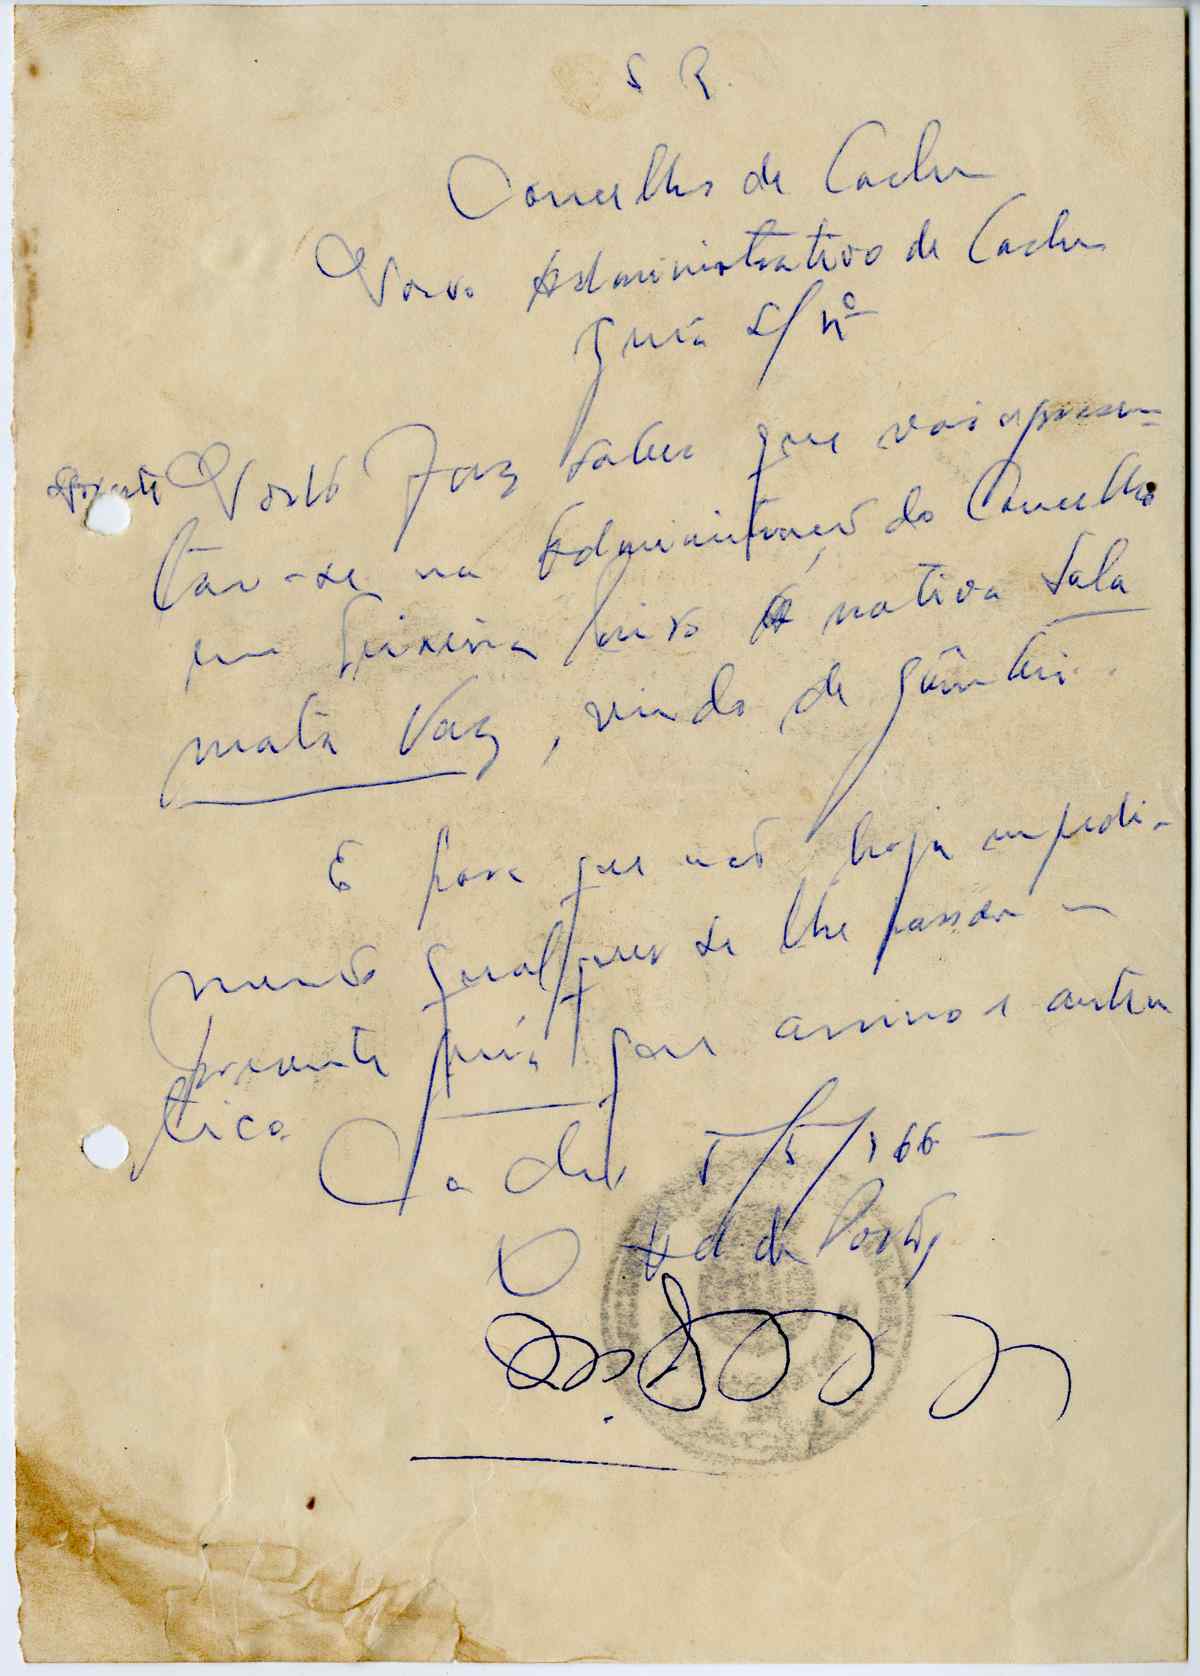 S R.
Concelho de Cacheu
Posto Administrativo de Cacheu
Guia S/ nº
Posto Faz saber que vai apresen-
tar-se na Administração do Concelho
em Teixeira Pinto a nativa Sala
mata Vaz, vindo de Gâmbia.
E para que não haja impedi-
mento qualquer se lhe passou
presente guia que assino e auten
tico.
Cacheu 5/5/966
O Ad. de Posto,